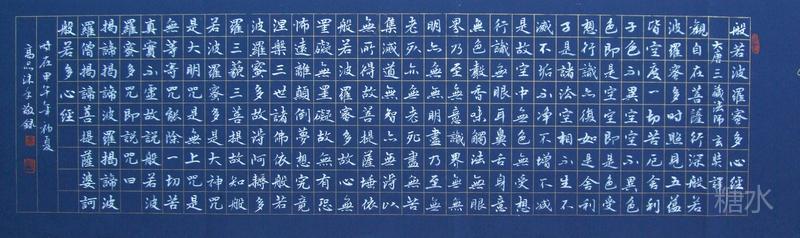 般若波羅蜜多心經
大唐三藏法師玄奘譯
觀自在菩薩行深般若
波羅蜜多時照見五蘊
皆空度一切苦厄舍利
子色不異空空不異色
色即是空空即是色受
想行識亦復如是舍利
子是諸法空相不生不
滅不垢不淨不增不減
是故空中無色無受想
行識無眼耳鼻舌身意
無色聲香味觸法無眼
界乃至無意識界無無
明亦無無明盡乃至無
老死亦無老死盡無苦
集滅道無智亦無得以
無所得故菩提薩埵依
般若波羅蜜多故心無
罣礙無罣礙故無有恐
怖遠離顛倒夢想究竟
涅槃三世諸佛依般若
波羅蜜多故得阿耨多
羅三藐三菩提故知般
若波羅蜜多是大神咒
是大明咒是無上咒是
無等等咒能除一切苦
真實不虛故說般若波
羅蜜多咒即說咒曰
揭諦揭諦波羅揭諦波
羅僧揭諦菩提薩婆訶
般若多心經
時在甲午年初夏
沐手敬錄
糖水